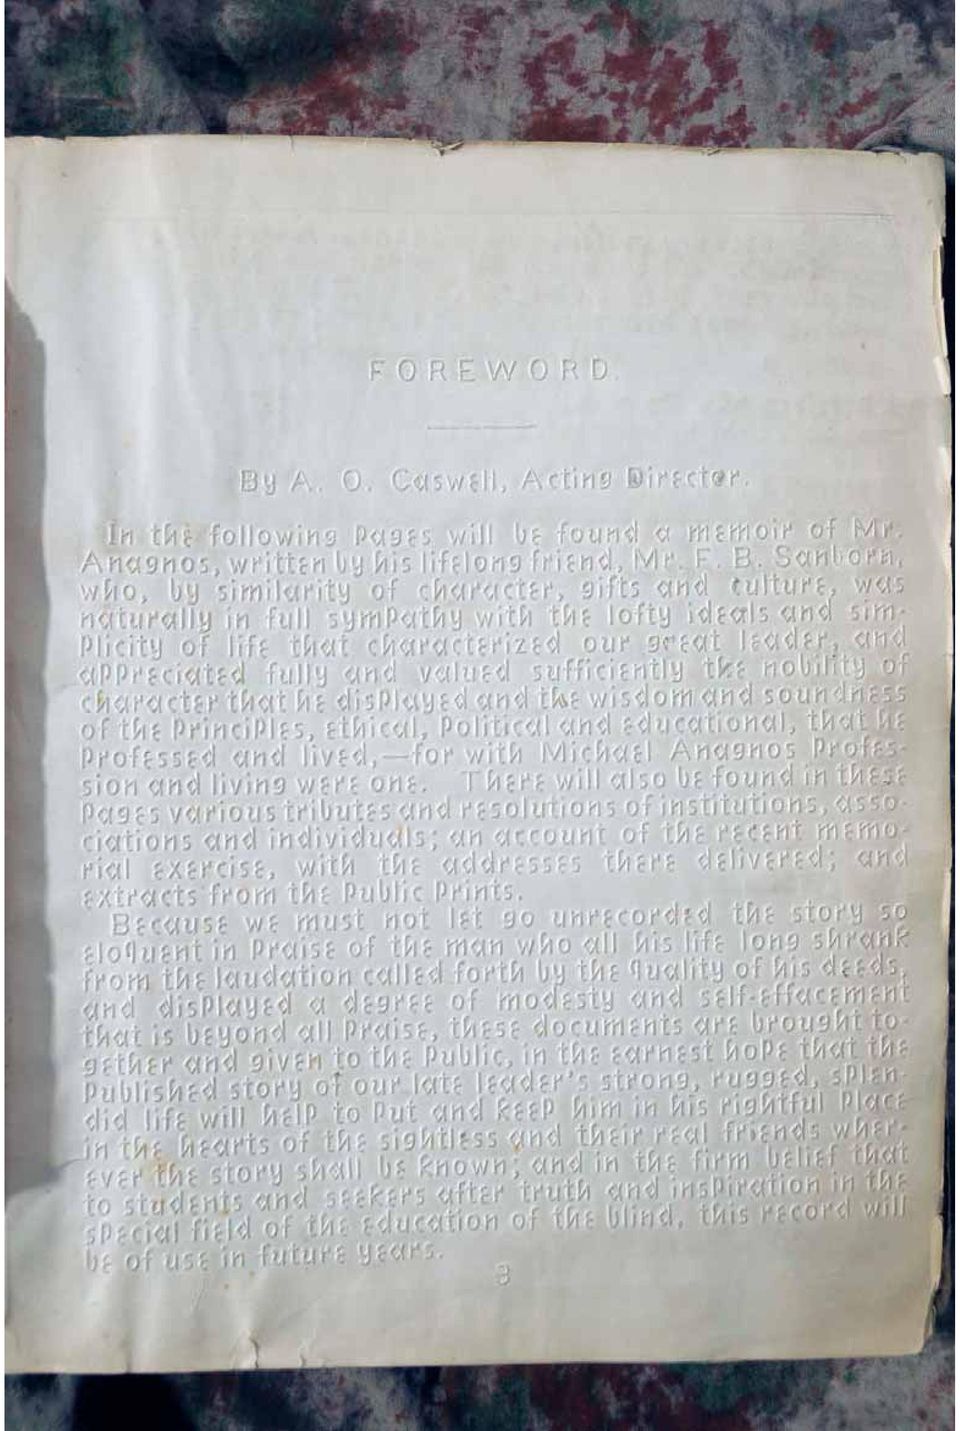 FOREWORD.
By A. O. Caswell, Acting Director.
In the following pages will be found a memoir of Mr.
Anagnos, written by his lifelong friend, Mr. F. B. Sanborn,
who, by similarity of character, gifts and culture, was
naturally in full sympathy with the lofty ideals and sim-
plicity of life that characterized our great leader, and
appreciated fully and valued sufficiently the nobility of
character that he displayed and the wisdom and soundness
of the principles, ethical, political and educational, that he
professed and lived,—for with Michael Anagnos profes-
sion and living were one. There will also be found in these
pages various tributes and resolutions of institutions, asso-
ciations and individuals; an account of the recent memo-
rial exercise, with the addresses there delivered; and
extracts from the public prints.
Because we must not let go unrecorded the story so
eloquent in praise of the man who all his life long shrank
from the laudation called forth by the quality of his deeds,
and displayed a degree of modesty and self-effacement
that is beyond all praise, these documents are brought to-
gether and given to the public, in the earnest hope that the
published story of our late leader's strong, rugged, splen-
did life will help to put and keep him in his rightful place
in the hearts of the sightless and their real friends wher-
ever the story shall be known; and in the firm belief that
to students and seekers after truth and inspiration in the
special field of the education of the blind, this record will
be of use in future years.
3